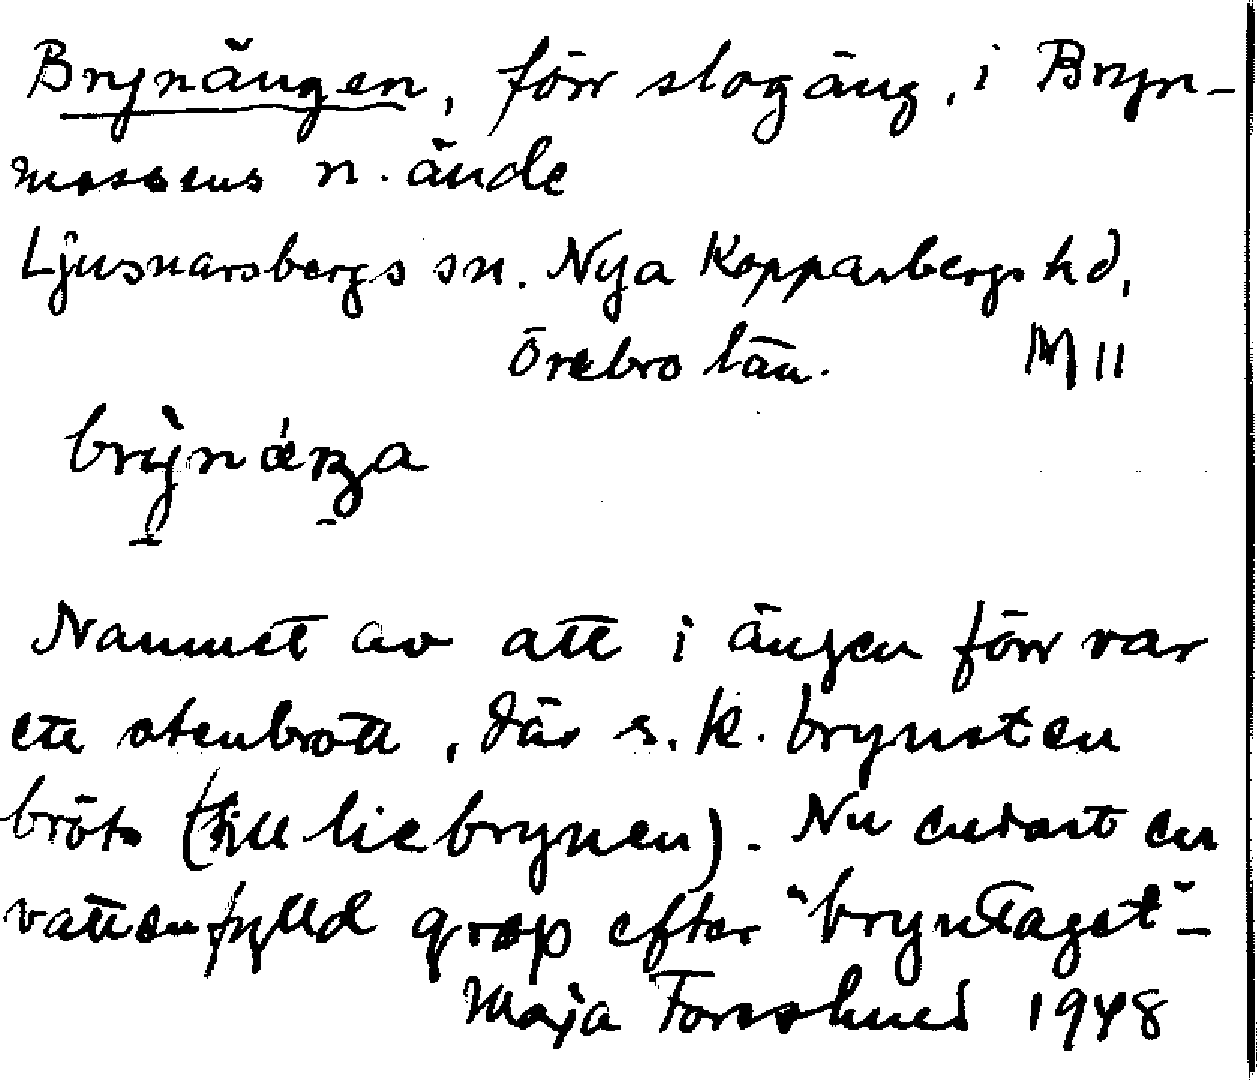 Brynängen, förr slogäng, i Bryn-
mossens n. ände
Ljusnarsbergs sn. Nya Kopparbergs hd,
Örebro län. M 11
brỳnæ̀ŋa
Namnet av att i ängen förr var
ett stenbrott, där s.k. brynsten
bröts (till liebrynen). Nu endast en
vattenfylld grop efter "bryntaget" -
Maja Forsslund 1948